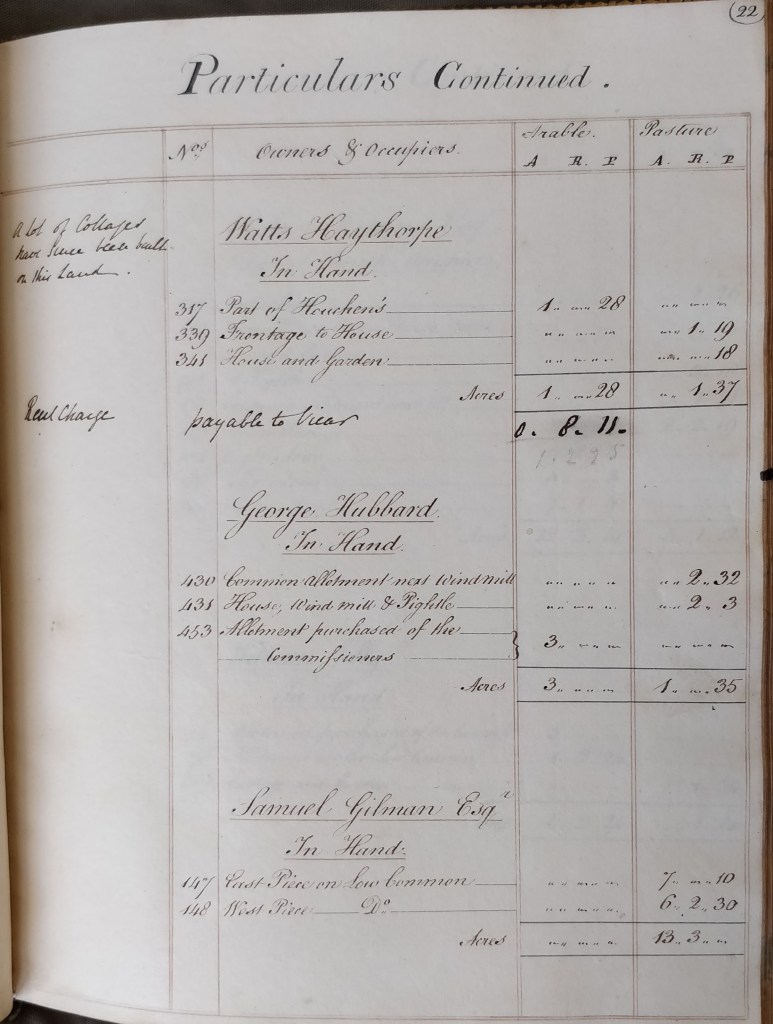 22
Particulars Continued.
Nos Owners & Occupiers. Arable. Pasture
A R. P A. R. P
A lot of Cottages
have since been built
on this Land.
Watts Haythorpe
In Hand.
317 Part of Houchen's 1 .. .. 28 .. .. ..
339 Frontage to House .. .. .. .. 1 .. 19
341 House and Garden .. .. .. .. .. 18
Acres 1 .. .. 28 .. 1 .. 37
Rent Charge payable to Vicar 0. 8. 11.
1.295
George Hubbard.
In Hand.
430 Common allotment next Wind mill .. .. .. .. 2 .. 32
431 House, Wind mill & Pightle .. .. .. .. 2 .. 3
453 Allotment purchased of the
Commissioners 3 .. .. .. .. .. ..
Acres 3 .. .. .. 1 .. .. 35
Samuel Gilman Esqr
In Hand.
147 East Piece on Low Common .. .. .. 7 .. .. 10
148 West Piece Do .. .. .. 6 .. 2 .. 30
Acres .. .. .. 13 .. 3 .. ..